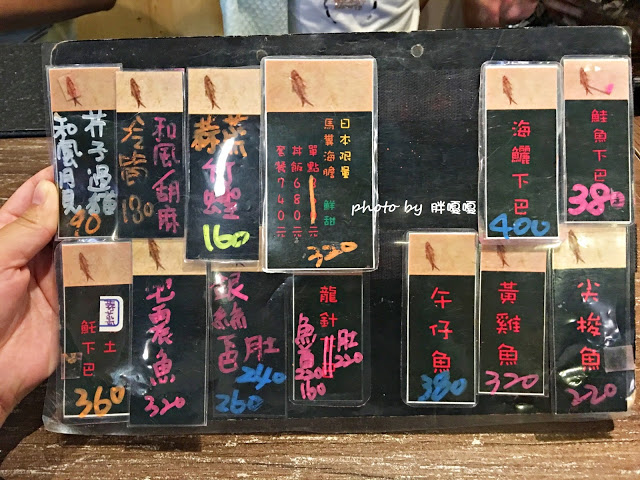 芥子過貓
和風月見
90
和風/胡麻
冷筍
180
蒜蓉竹蟶
160
日本限量
馬糞海膽 鮮甜
單點 元
丼飯680元
套餐740元
320
海鱺下巴
400
鮭魚下巴
380
photo by 胖嘎嘎
土
魠下巴
360
魚
320
銀絲
肚
240
260
龍針
肚
220
魚
160
午仔魚
380
黃雞魚
320
尖梭魚
220